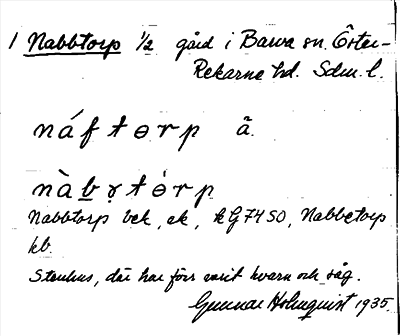 1 Nabbtorp ½ gård i Barva sn. Öster-
Rekarne hd. Sdm. l.
náftɵrp ã.
nàb̲ɣtɵ́rp
Nabbtorp bek, ek, kG 7450, Nabbetorp
kb.
Stenhus, där har förr varit kvarn och såg.
Gunnar Holmquist 1935.